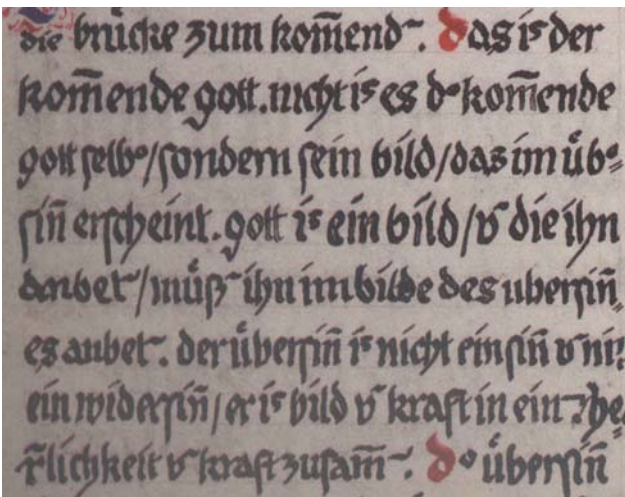 die brücke zum kom̄end~. das is der
kom̄ende gott. nicht is es d° kom̄ende
gott selb°/sondern sein bild/das im üb°=
sin̄ erscheint. gott is ein bild/v̄ die ihn
anbet~/müß~ ihn im bilde des ubersin̄=
es anbet~. der übersin̄ is nicht ein sin̄ v̄ ni:
ein widersin̄/er is bild v̄ kraft in ein~. he
r̄lichkeit v̄ kraft zusam̄~. d° übersin̄